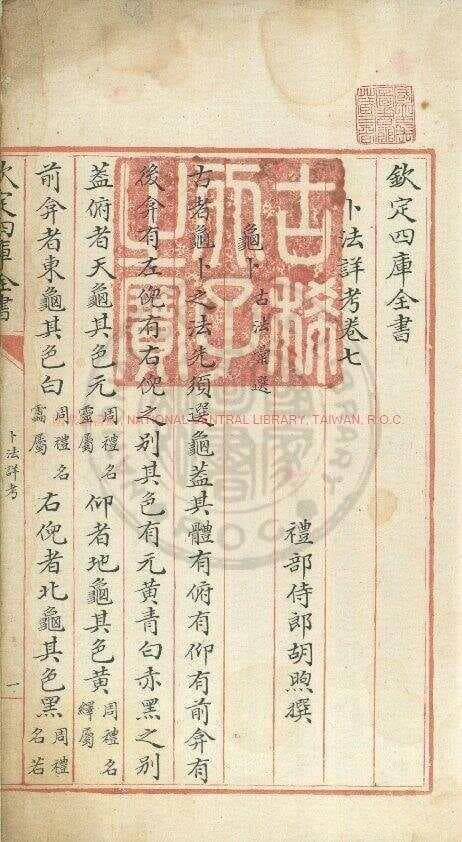 欽定四庫全書
卜法詳考卷七
禮部侍郎胡煦撰
龜卜 古法選
古者龜卜之法先須選龜蓋其體有俯有仰有前弇有
後弇有左倪有右倪之別其色有元黃青白赤黑之別
蓋俯者天龜其色元周禮名靈屬仰者地龜其色黃周禮名繹屬
前弇者東龜其色白周禮名靁屬右倪者北龜其色黑周禮名若
欽定四庫全書
卜法詳考
一
古稀天子之寶
NATIONAL CENTRAL LIBRARY, TAIWAN, R.O.C.